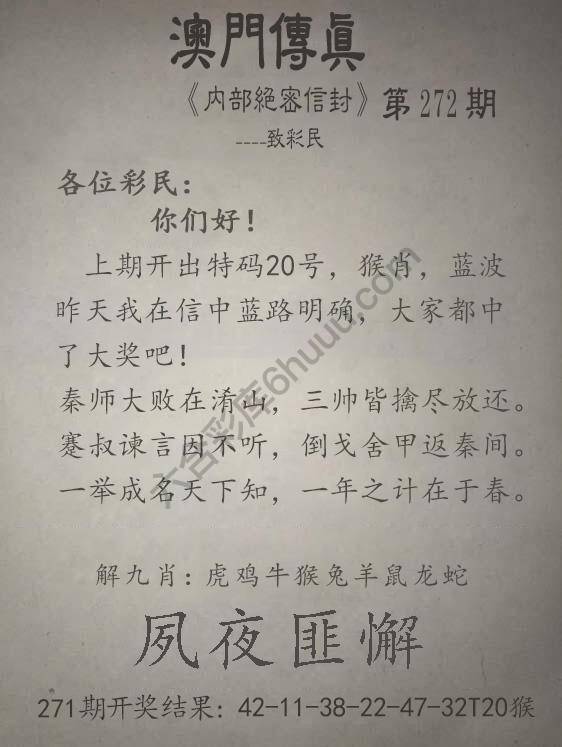 澳門傳眞
《内部絕密信封》第272期
----致彩民
各位彩民：
你们好！
上期开出特码20号，猴肖，蓝波
昨天我在信中蓝路明确，大家都中
了大奖吧！
秦师大败在淆山，三帅皆擒尽放还。
蹇叔谏言因不听，倒戈舍甲返秦间。
一举成名天下知，一年之计在于春。
六合彩库6huuu.com
解九肖：虎鸡牛猴兔羊鼠龙蛇
夙夜匪懈
271期开奖结果：42-11-38-22-47-32T20猴